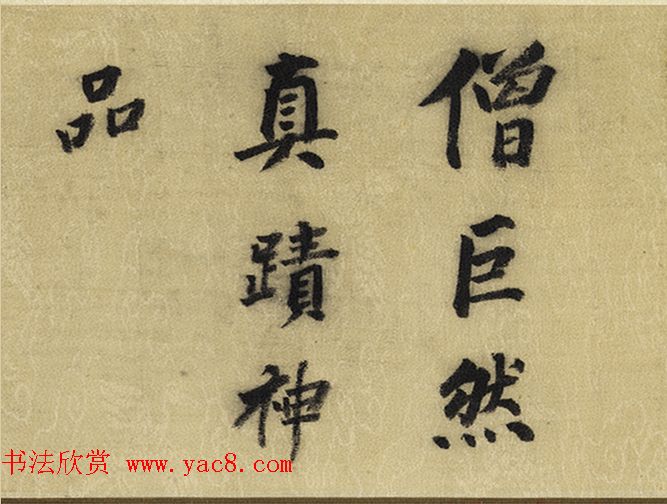 僧巨然
真蹟神
品
书法欣赏 www.yac8.com